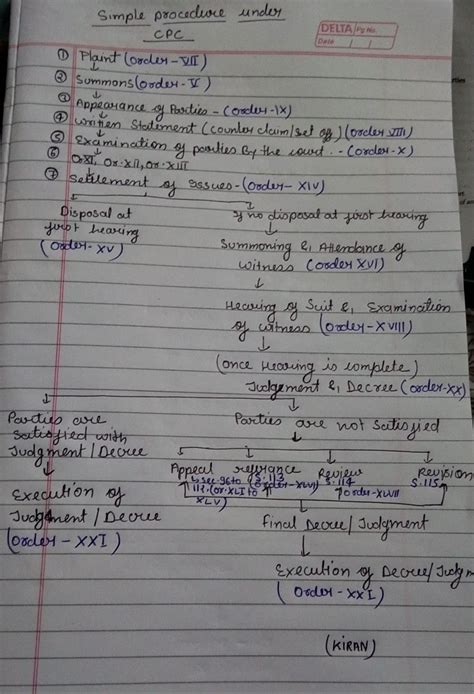 Simple procedure under
CPC
DELTA Pg No.
Date
① Plaint (Order-VII)
② Summons (Order-V)
③ Appearance of Parties - (Order-IX)
④ Written Statement (counter claim/set of) (Order VIII)
⑤ Examination of parties By the court. - (Order-X)
⑥ Or XI, Or-XII, Or-XIII
⑦ Settlement of Issues - (Order-XIV)
Disposal at
first hearing
(Order-XV)
If no disposal at first hearing
Summoning & Attendance of
Witness (Order XVI)
Hearing of Suit & Examination
of witness (Order-XVIII)
(Once Hearing is complete)
Judgement & Decree (Order-XX)
Parties are
Satisfied with
Judgment/Decree
Execution of
Judgment/Decree
(Order-XXI)
Parties are not Satisfied
Appeal
Sec-96 to
112, (Or-XLI to
XLV)
refrence
S.113
(Order-XLVI)
Review
S.114
Order-XLVII
Revision
S.115
Final Decree/Judgment
Execution of Decree/Judgm
(Order-XXI)
(KIRAN)